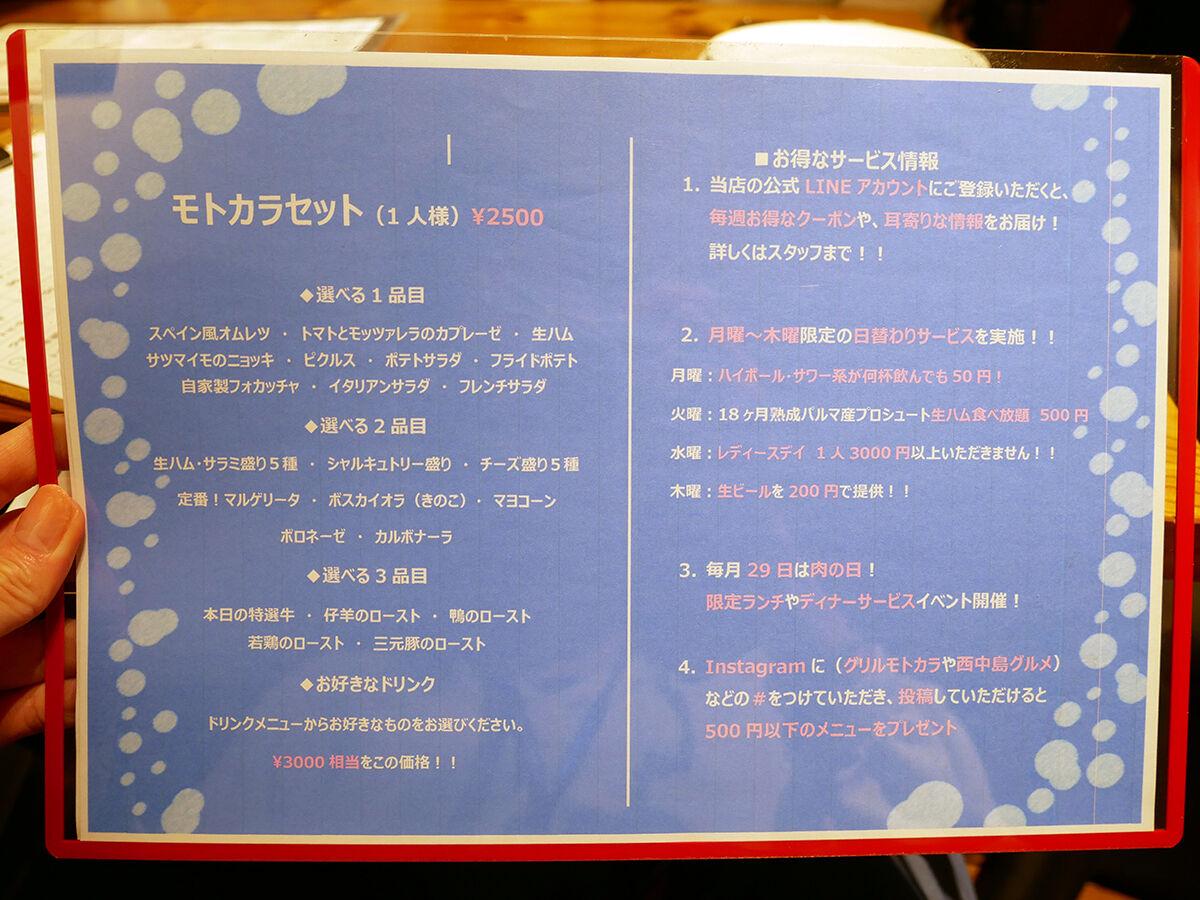 モトカラセット（1人様）¥2500
◆選べる1品目
スペイン風オムレツ ・ トマトとモッツァレラのカプレーゼ ・ 生ハム
サツマイモのニョッキ ・ ピクルス ・ ポテトサラダ ・ フライドポテト
自家製フォカッチャ ・ イタリアンサラダ ・ フレンチサラダ
◆選べる2品目
生ハム・サラミ盛り5種 ・ シャルキュトリー盛り ・ チーズ盛り5種
定番！マルゲリータ ・ ボスカイオラ（きのこ）・ マヨコーン
ボロネーゼ ・ カルボナーラ
◆選べる3品目
本日の特選牛 ・ 仔羊のロースト ・ 鴨のロースト
若鶏のロースト ・ 三元豚のロースト
◆お好きなドリンク
ドリンクメニューからお好きなものをお選びください。
¥3000相当をこの価格！！
■お得なサービス情報
1. 当店の公式LINEアカウントにご登録いただくと、
毎週お得なクーポンや、耳寄りな情報をお届け！
詳しくはスタッフまで！！
2. 月曜～木曜限定の日替わりサービスを実施！！
月曜：ハイボール・サワー系が何杯飲んでも50円！
火曜：18ヶ月熟成パルマ産プロシュート生ハム食べ放題 500円
水曜：レディースデイ 1人3000円以上いただきません！！
木曜：生ビールを200円で提供！！
3. 毎月29日は肉の日！
限定ランチやディナーサービスイベント開催！
4. Instagramに（グリルモトカラや西中島グルメ）
などの#をつけていただき、投稿していただけると
500円以下のメニューをプレゼント